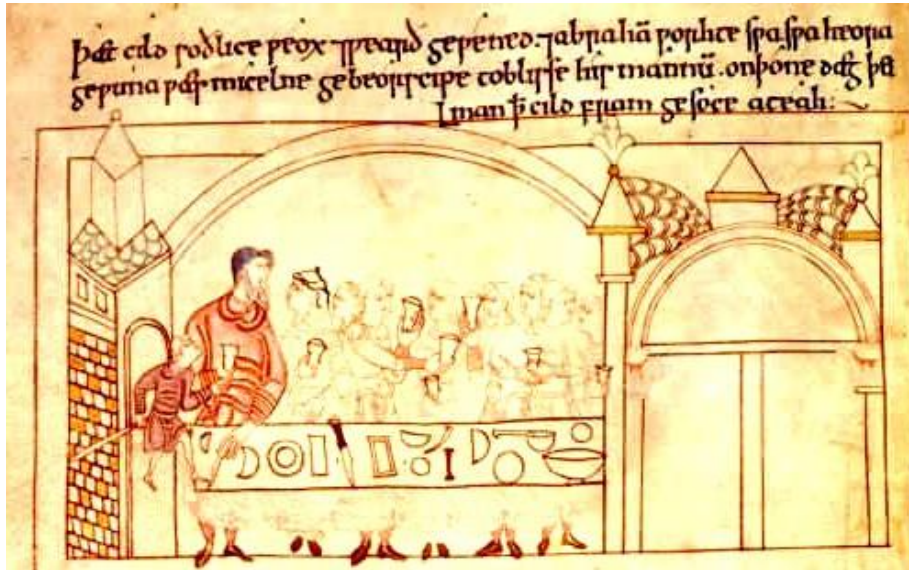 Þæt cild soðlice ƿeox ⁊ ƿearð geƿened. ⁊ abrahā ƿorhte sƿa sƿa heora
geƿuna ƿæs micelne gebeorscipe to blisse his mannū. on þone dæg þe
man ꝥ cild fram gesoce ateah: